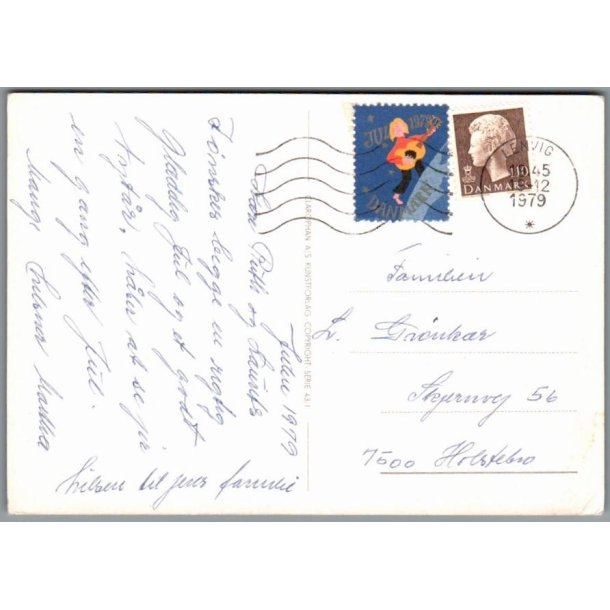 Julen 1979
Ruth og Laurits
I ønskes begge en rigtig
Glædelig Jul og et godt
Nytår, håber at se jer
en gang efter Jul.
Mange
Hilsen til jeres familie
JUL 1979
DANMARK
110
DANMARK
45
12
1979
CLARAPHAN A.S KUNSTFORLAG COPYRIGHT SERIE 43
Familien
L. Grönkær
Skjernvej 56
7500 Holstebro